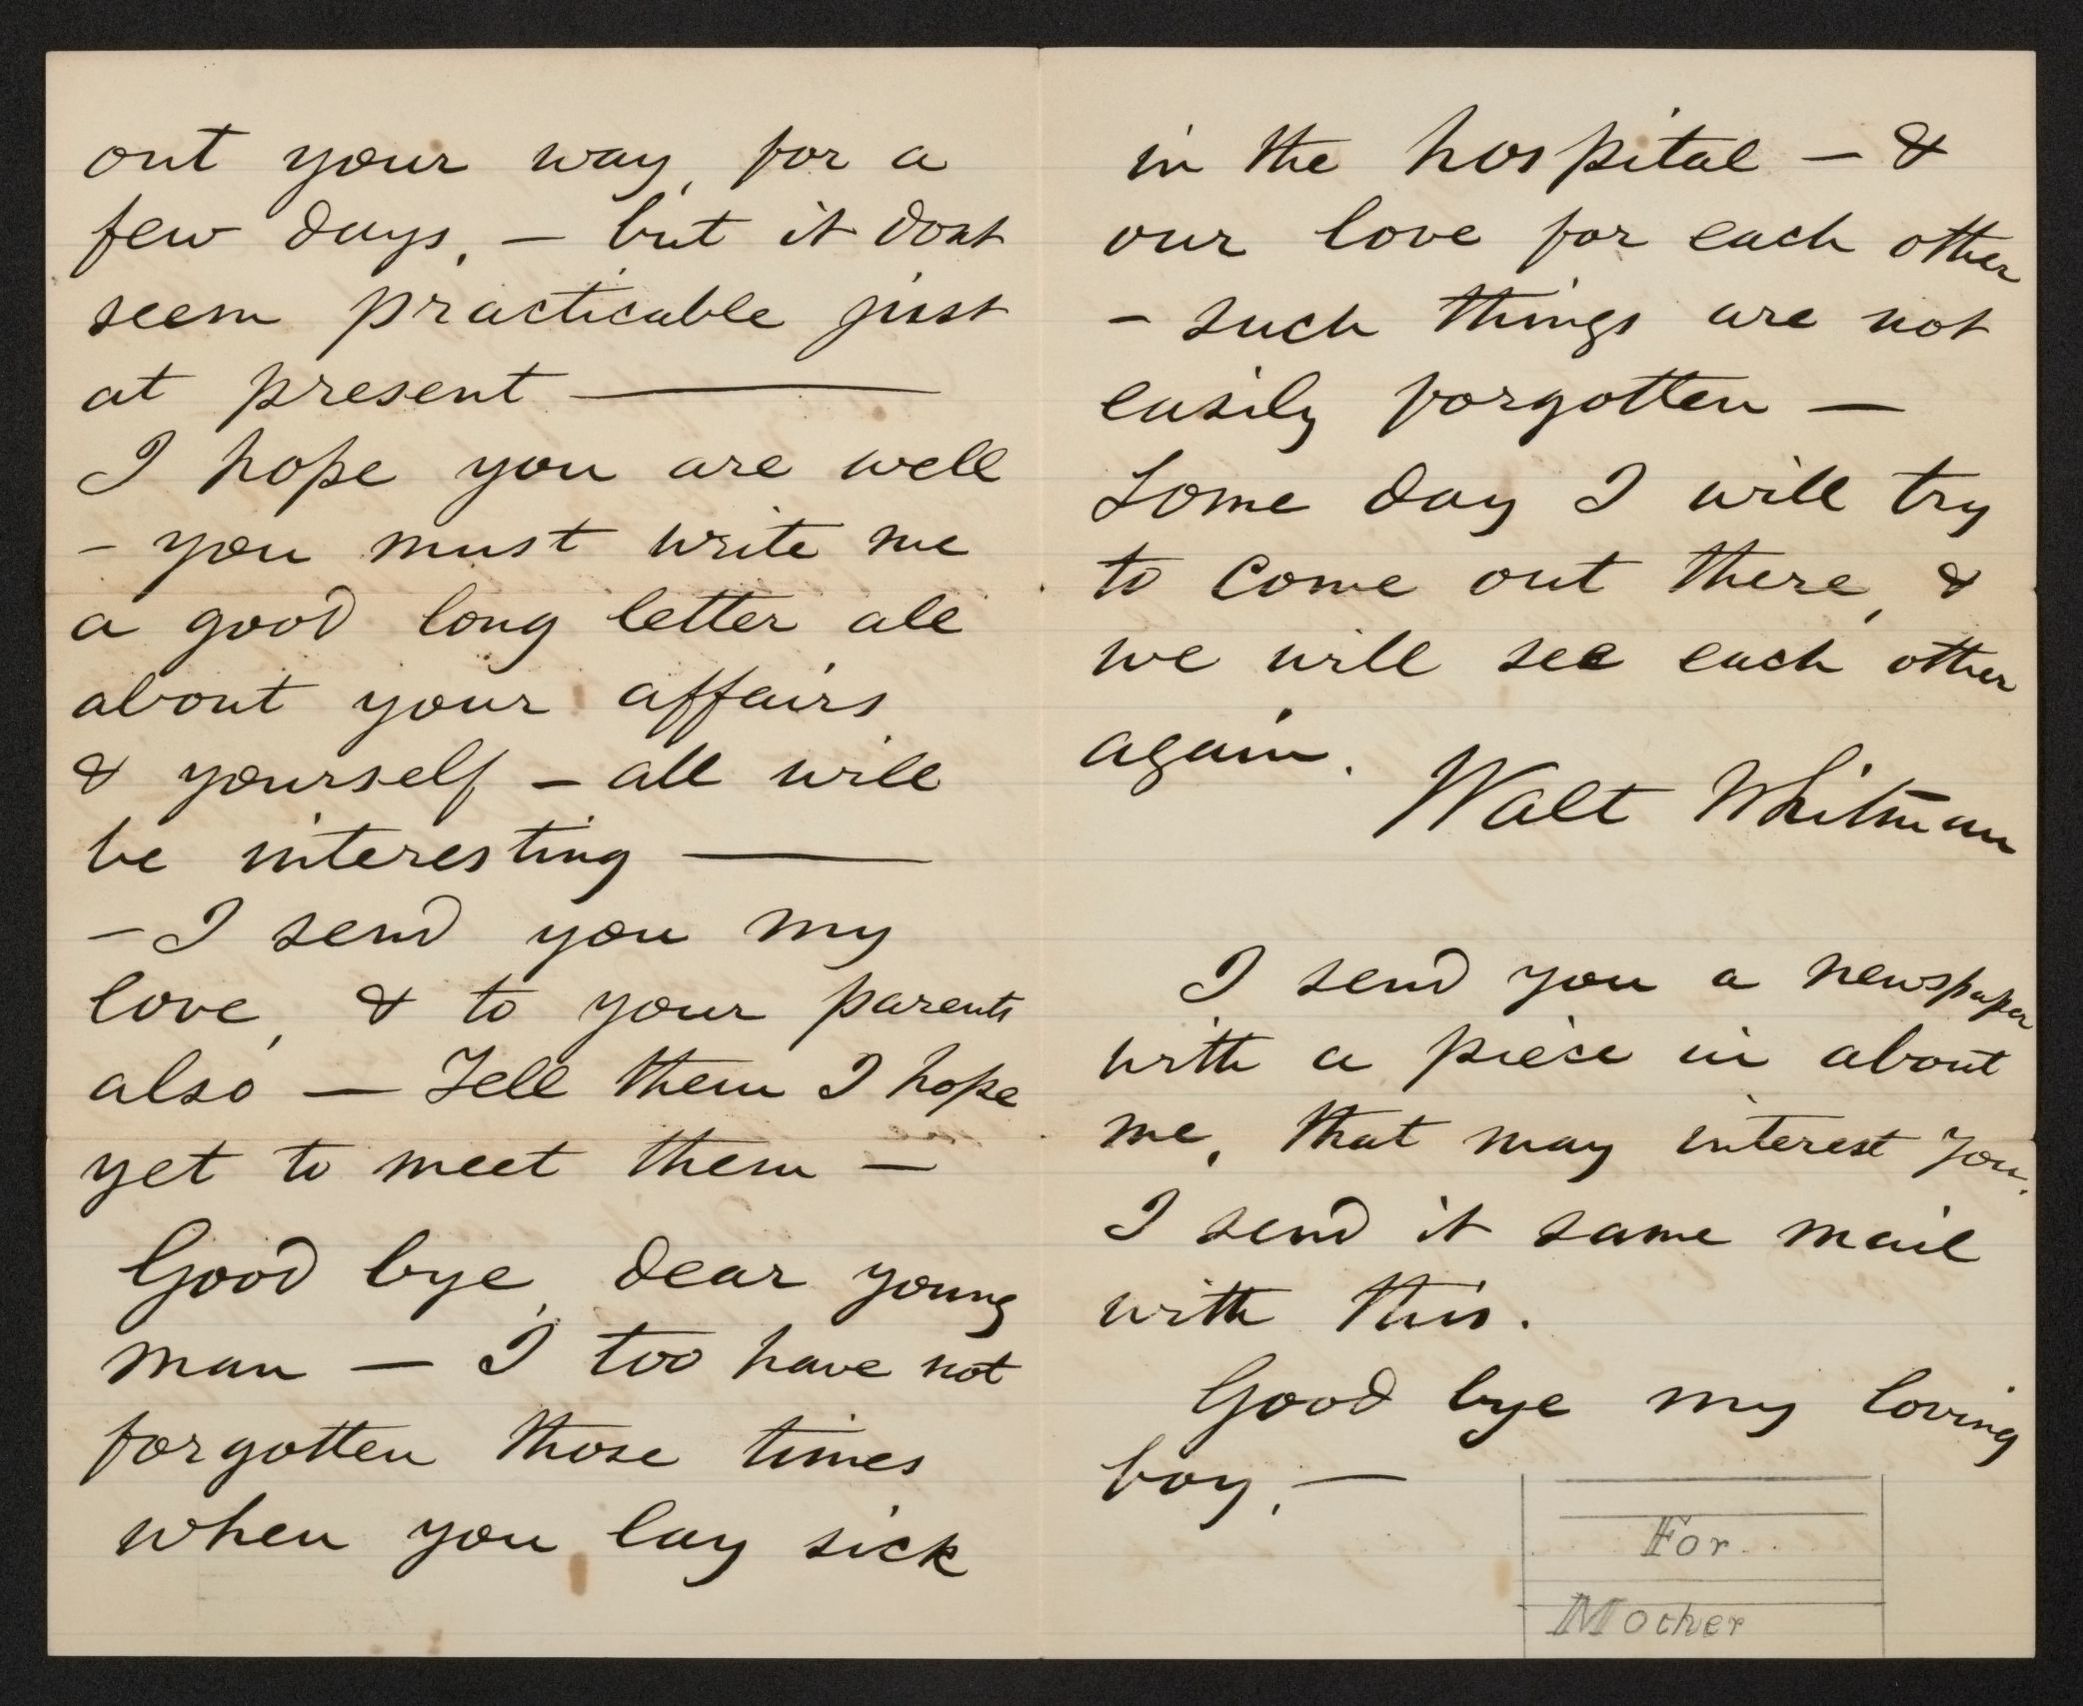 out your way, for a
few days, — but it dont
seem practicable just
at present ———
I hope you are well
– you must write me
a good long letter all
about your affairs
& yourself – all will
be interesting ———
– I send you my
love, & to your parents
also — Tell them I hope
yet to meet them —
Good bye, dear young
man — I too have not
forgotten those times
when you lay sick
in the hospital — &
our love for each other
– such things are not
easily forgotten —
Some day I will try
to come out there, &
we will see each other
again.
Walt Whitman
I send you a newspaper
with a piece in about
me, that may interest you.
I send it same mail
with this.
Good bye my loving
boy, —
For
Mother